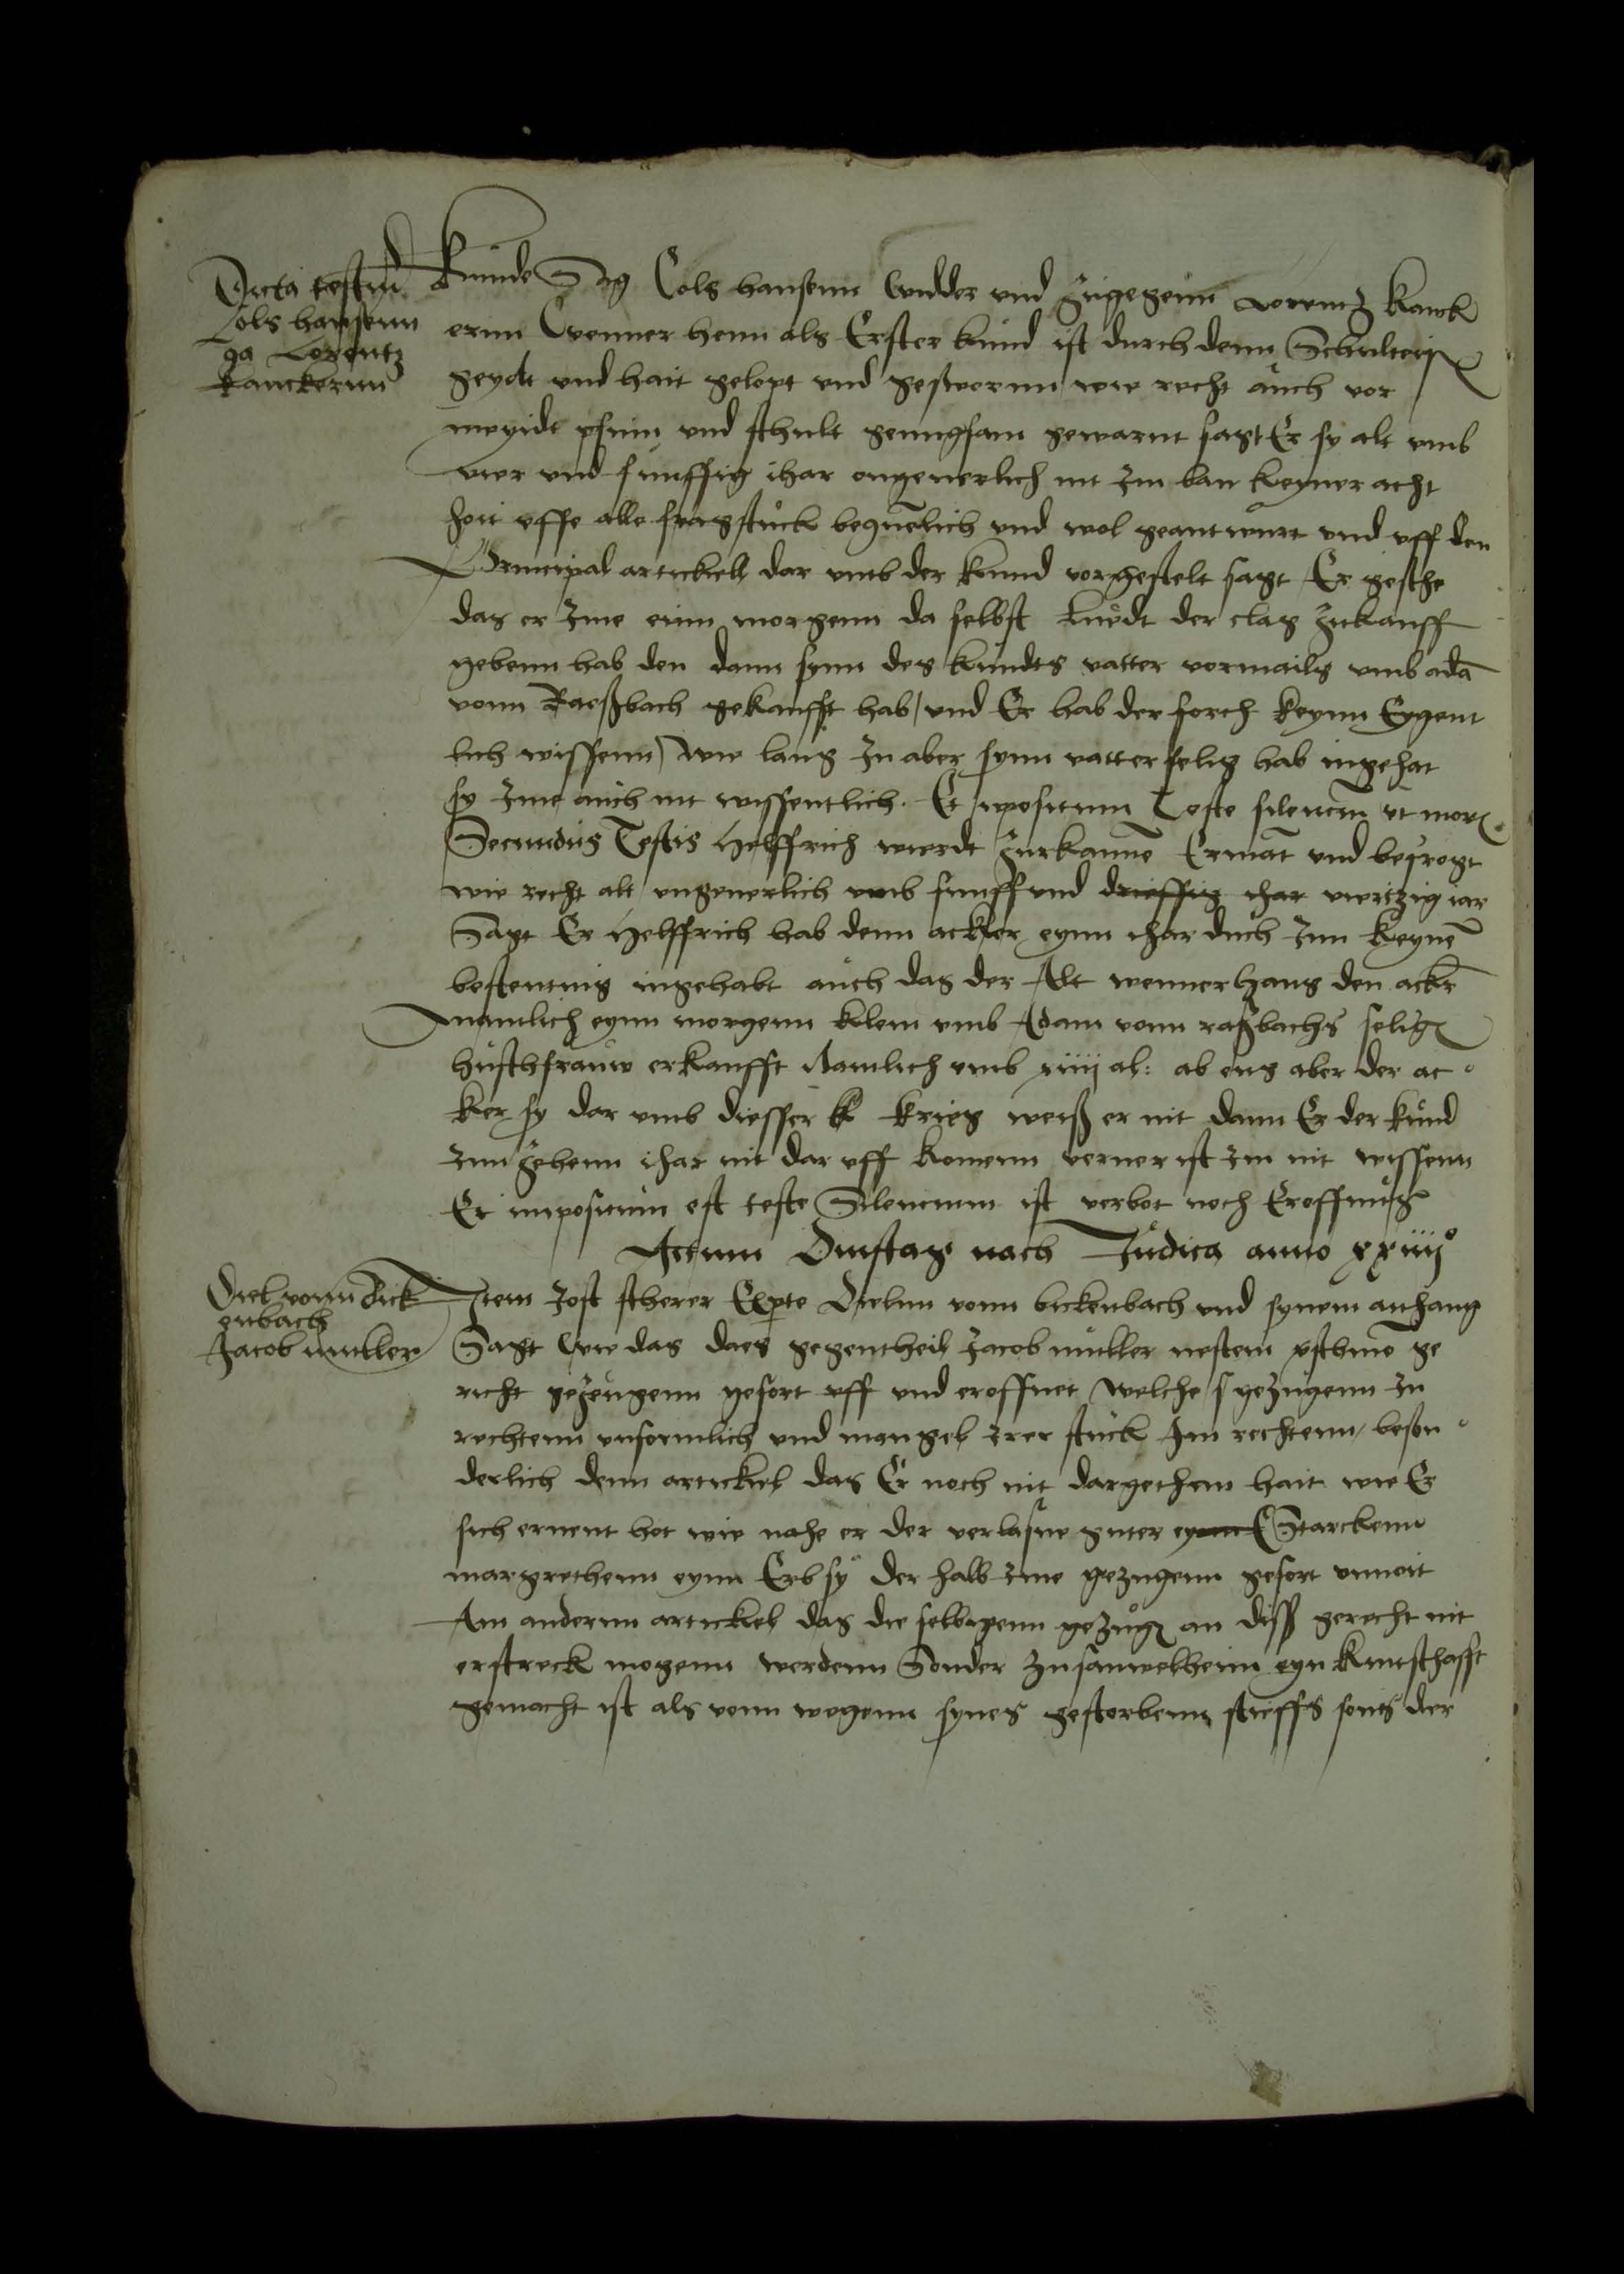 Dicta testium
Cols hansenn
ga Lorentz
Kanckernn
Kunde Sag Cols hansenn widder und zugegenn Lorentz Kanck
ernn Wenner henn als Erster kund ist durch denn Schulteiß
geydt und hait gelopt und geswornn wie recht auch vor
meyidt und schult genugsam gewarnt sagt Er sy alt umb
vier und funffzig ihar ongeuerlich nit Im ban keyner acht
hort uffe alle fragstuck bequelich und wol geantwurt und uff den
Principal artickell dar umb der kund vorgestelt sagt Er gesthe
das er Ime einn morgenn da selbst der clag zukauff
gebenn hab den dann synn des kundts vatter vormails umb adā
vonn Raeßbach gekaufft hab / und Er hab der forch keynn Eygent
lich wissenn / wie lang In aber synn vatter selig hab ingehat
sy Ime auch nit wissentlich. Et inpositum Teste silenciū ut mor
Secundus Testis Helffrich wurdt zurkannē Ermāt und befrogt
wie recht alt ungeuerlich umb funff und drieffzig ihar viertzig iar
Sagt Er Helffrich hab denn acker eynn ihar duch Inn keynē
bestentnis ingehabt auch das der Alt wenner hans den ackr
namlich eynn morgenn klein umb Adam vonn raßbachs selig
husthfrauw erkaufft Namlich umb xiiij al: ab eus aber der ac
ker sy dar umb diesser k krieg weiß er nit dann Er der kund
Inn zehenn ihar nit dar uff komenn verner ist Im nit wissenn
Et inpositum est teste Silencium ist verbot noch Eroffnug
Actum Dinstag nach Judica anno xxiiij°
Diel vonn Bick
enbach
Jacob muller
Item Jost scherer Exparte Dielnn vonn bickenbach und synem anhang
Sagt wie das daes gegentheil Jacob muller nestem ge
richt gezeugenn gefort uff und eroffnet welche s gezugenn In
rechtenn unformlich und mangel Irer stuck Im rechtenn / beson
derlich denn artickel das Er noch nit dargethom hait wie Er
sich ernent hot wie nahe er der verlasne guter eynn Starckenn
margrethenn eynn Erb sy der halb Ime gezugenn gefort unnoit
Am andernn artickel das die selbigenn gezug an diss gerecht nit
erstreck mogenn werdenn Sonder zu sauwelheim eyn kuntschafft
gemacht ist als vonn wegenn synes gestorbenn stieffs sons der